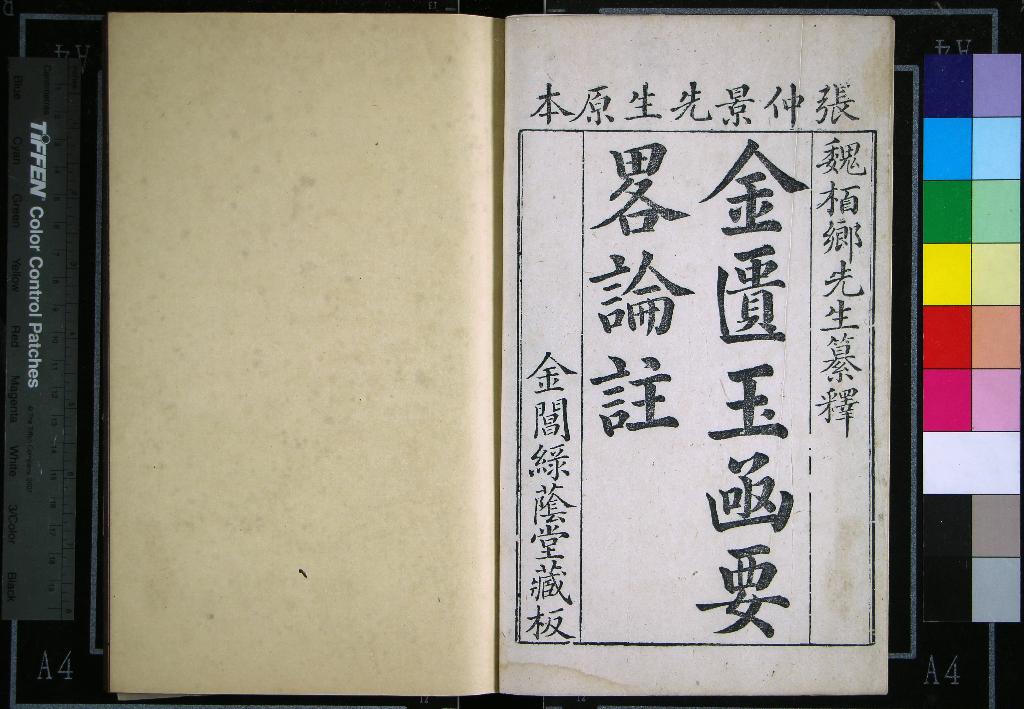 張仲景先生原本
魏栢鄉先生纂釋
金匱玉函要
畧論註
金閶綠蔭堂藏板
TIFFEN Color Control Patches
Blue
Cyan
Green
Yellow
Red
Magenta
White
3/Color
Black
A4
A4
A4
A4